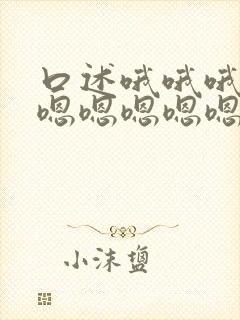 口述哦哦哦
嗯嗯嗯嗯嗯
小沫盐